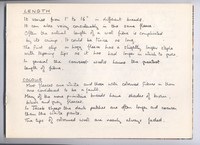 LENGTH
It varies from 1" to 16" in different breeds.
It can also vary considerably in the same fleece.
Often the natural length of a wool fibre is complicated
by its crimp. It could be twice as long.
The first clip or hogg fleece has a slightly longer staple
with tapering tips as it has had longer in which to grow.
In general the coarsest wools have the greatest
length of fibre.
COLOUR
Most fleeces are white and those with coloured fibres in them
are considered to be a fault.
Many of the more primitive breeds have shades of brown
black and grey fleeces.
In the Jacob the dark patches are often longer and coarser
than the white parts.
The tips of coloured wool are usually always faded.